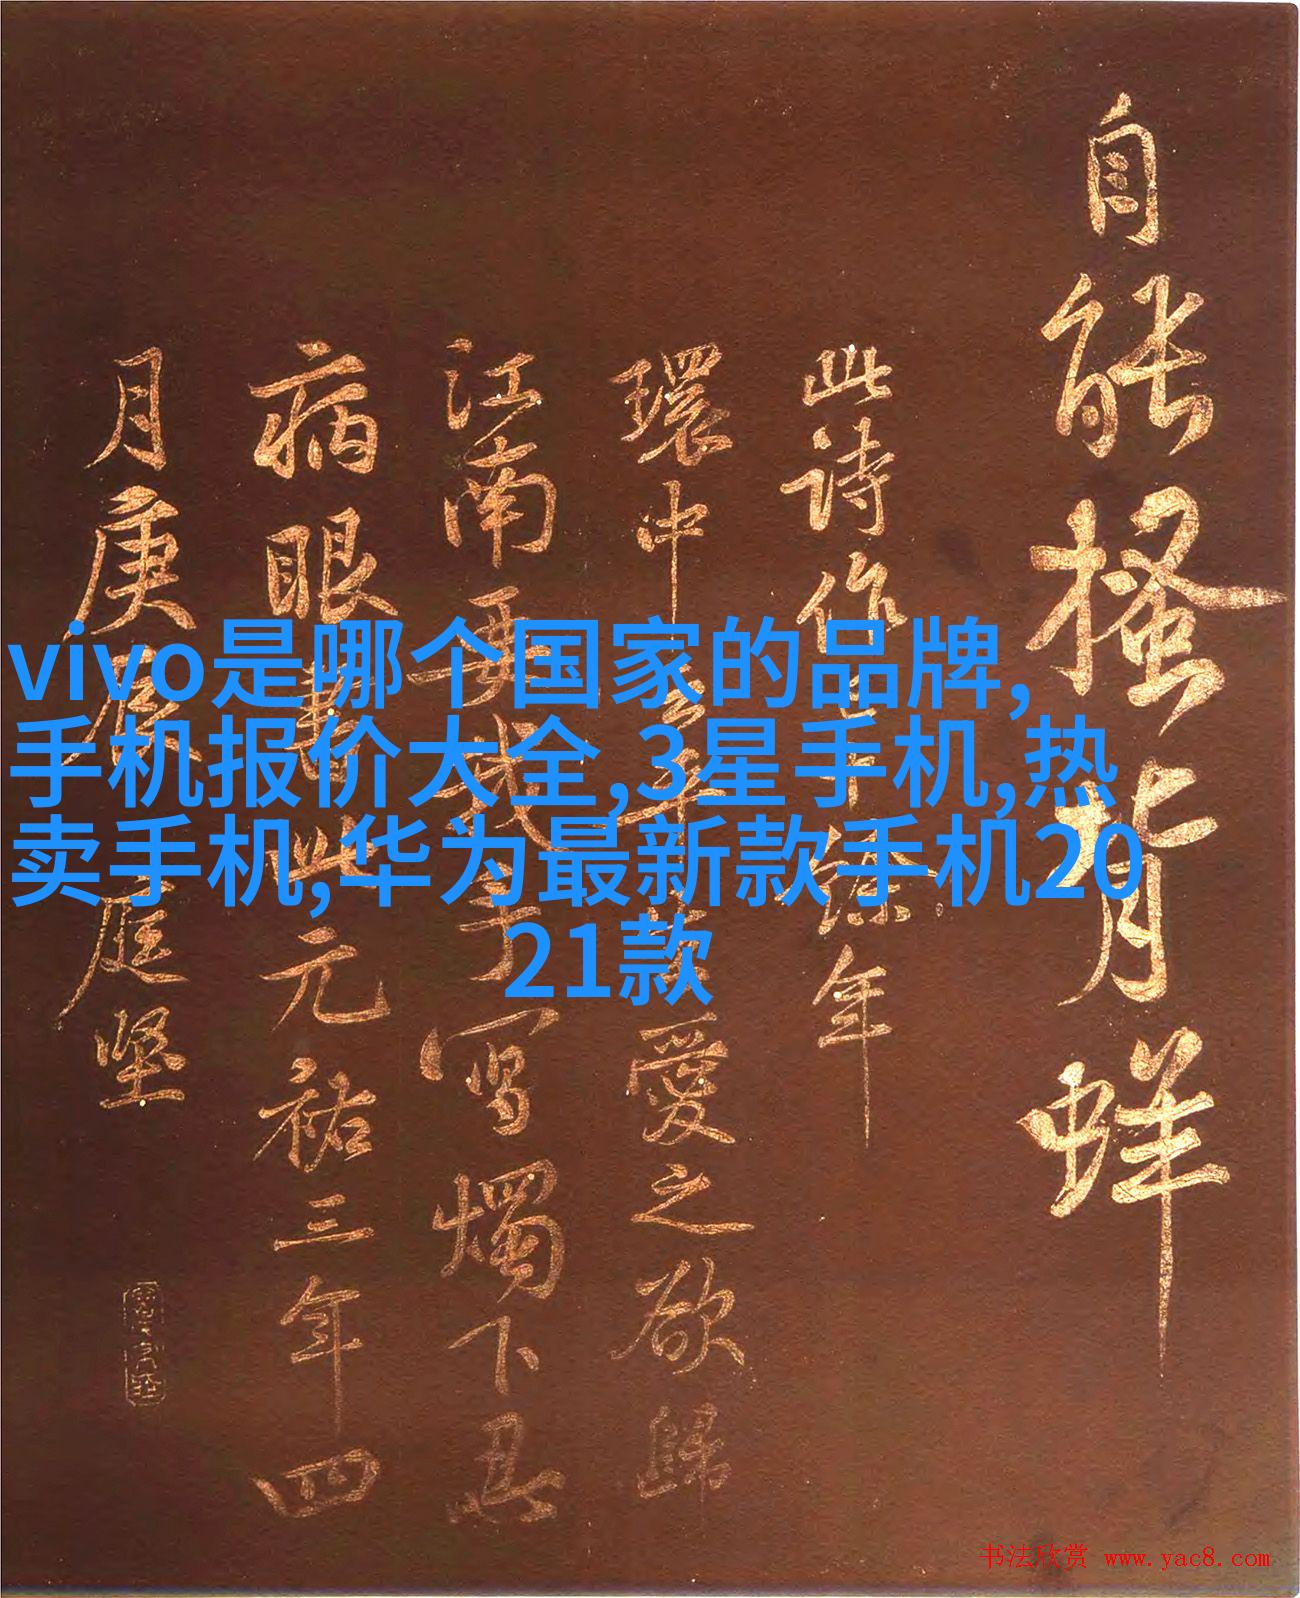 vivo是哪个国家的品牌,
手机报价大全,3星手机,热
卖手机,华为最新款手机20
21款
自能搔背蛘
此詩作
年
環中
愛之欲歸
江南
寫燭下
病眼書此元祐三年四
月庚辰庭堅
书法欣赏 www.yac8.com